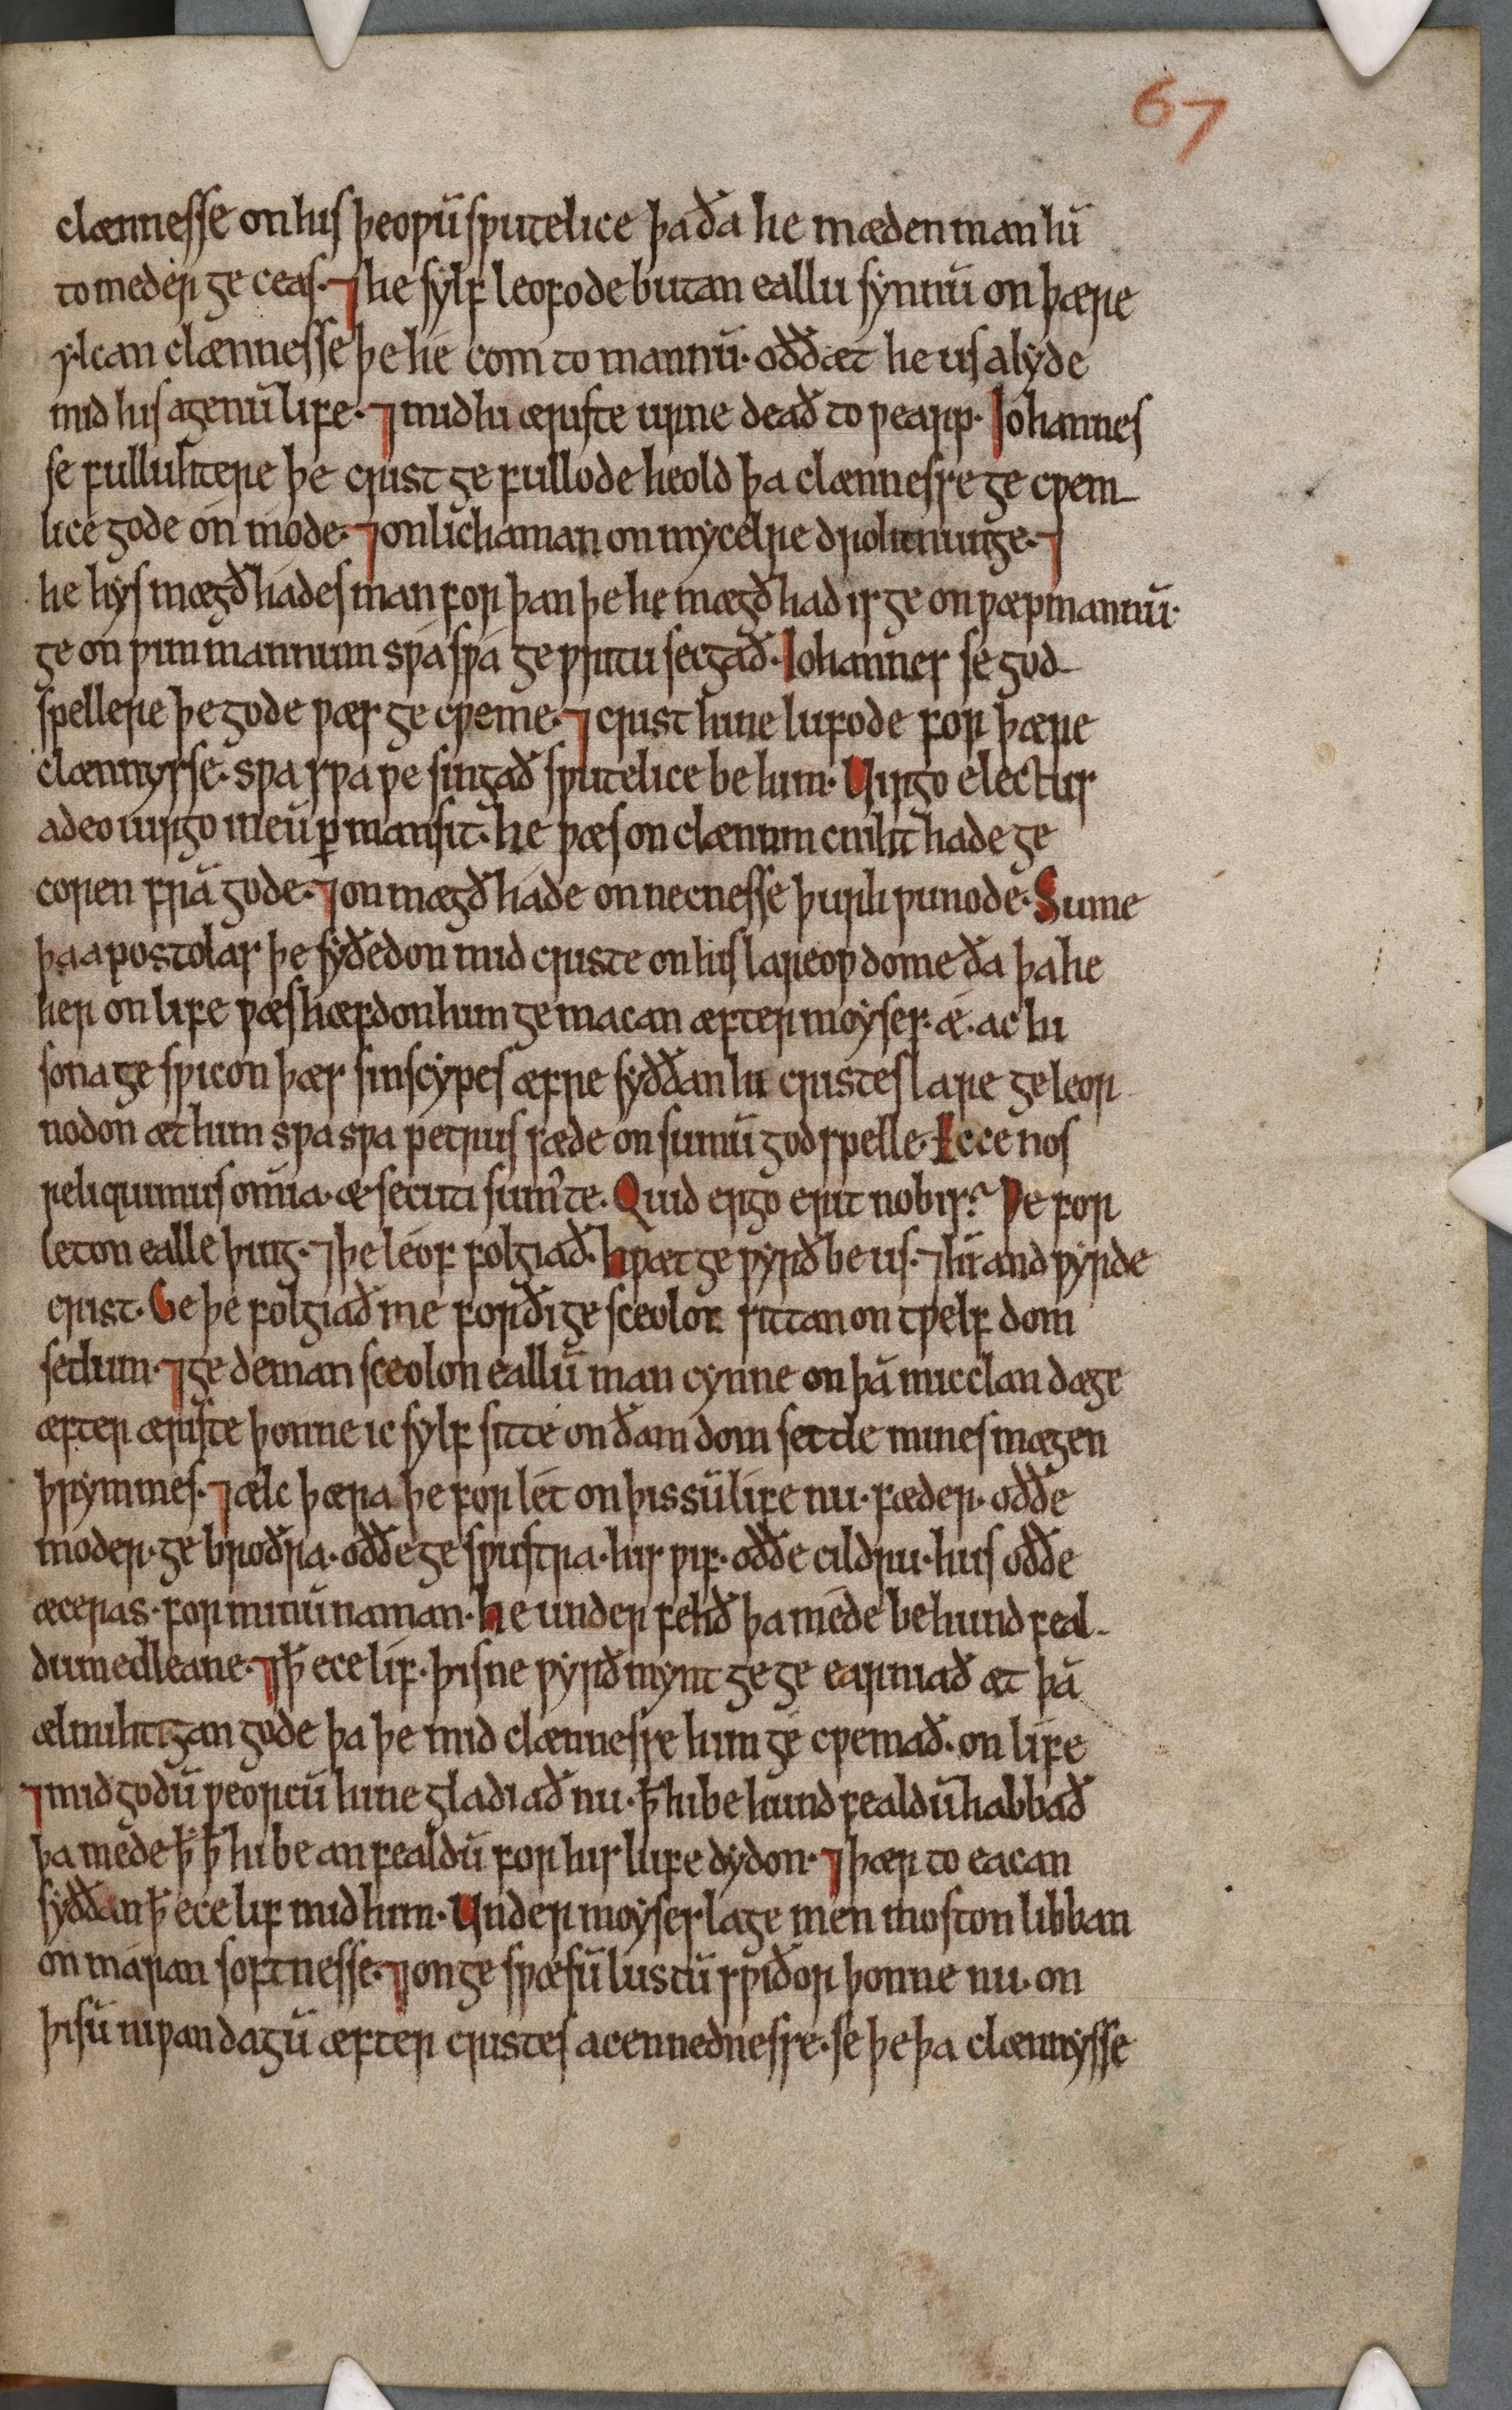 67
clænnesse on his þeoƿū sƿutelice þa ða he mæden man hī
to meder ge ceas. ⁊ he sylf leofode butan eallū synnū on þære
ylcan clænnesse þe he com to mannū. oððæt he us alyde
mid his agenū life. ⁊ mid hi æriste urne deað to ƿearp. Iohannes
se fulluhtere þe crist ge fullode heold þa clænnesse ge cƿem
lice gode on mode. ⁊ on lichaman on mycelre drohtnunge. ⁊
he hys mægðhades man for þan þe he mægð had is ge on ƿæpmannū.
ge on ƿimmannum sƿa sƿa ge ƿritu secgað. Iohannes se god
spellere þe gode ƿæs ge cƿeme. ⁊ crist hine lufode for þære
clænnysse. sƿa sƿa ƿe singað sƿutelice be him. Uirgo electus
adeo uirgo ineuū p̱mansit. he ƿæs on clænum cniht hade ge
coren frā gode. ⁊ on mægð hade on necnesse þurh ƿunode. Sume
þa apostolas þe syðedon mid criste on his lareoƿ dome ða þa he
her on life ƿæs hæfdon him ge macan æfter moyses. æ. ac hi
sona ge sƿicon þæs sinscypes æfre syððan hi cristes lare geleor
nodon æt him sƿa sƿa petrus sæde on sumū godspelle. Ecce nos
reliquimus om̄ia. æ. secuti sum᷒te. Quid ergo erit nobis? Ƿe for
leton ealle þing. ⁊ þe leof folgiað. hƿæt ge ƿyrð be us. ⁊ hī andƿyrde
crist. Ge þe folgiað me forði ge sceolon sittan on tƿelf dom
setlum. ⁊ ge deman sceolon eallū man cynne on þā micclan dæge
æfter æriste þonne ic sylf sitte on ðam dom settle mines mægen
þrymmes. ⁊ ælc þæra þe for let on þissū life nu. fæder. oððe
moder. ge broðra. oððe ge sƿustra. his ƿif. oððe cildru. hus oððe
æceras. for minū naman. he under fehð þa mede be hund feal
dum edleane. ⁊ ꝥ ece lif. þisne ƿyrðmynt ge ge earniað æt þā
ælmihtigan gode þa þe mid clænnesse him ge cƿemað. on life
⁊ mid godū ƿeorcū hine gladiað nu. ꝥ hi be hund fealdū habbað
þa mede ꝥ ꝥ hi be an fealdū for his lufe dydon. ⁊ þær to eacan
syððan ꝥ ece lif mid him. Under moyses lage men moston libban
on maran softnesse. ⁊ on ge sƿæsū lustū sƿiðor þonne nu. on
þisū niƿan dagū æfter cristes acennednesse. se þe þa clænnysse